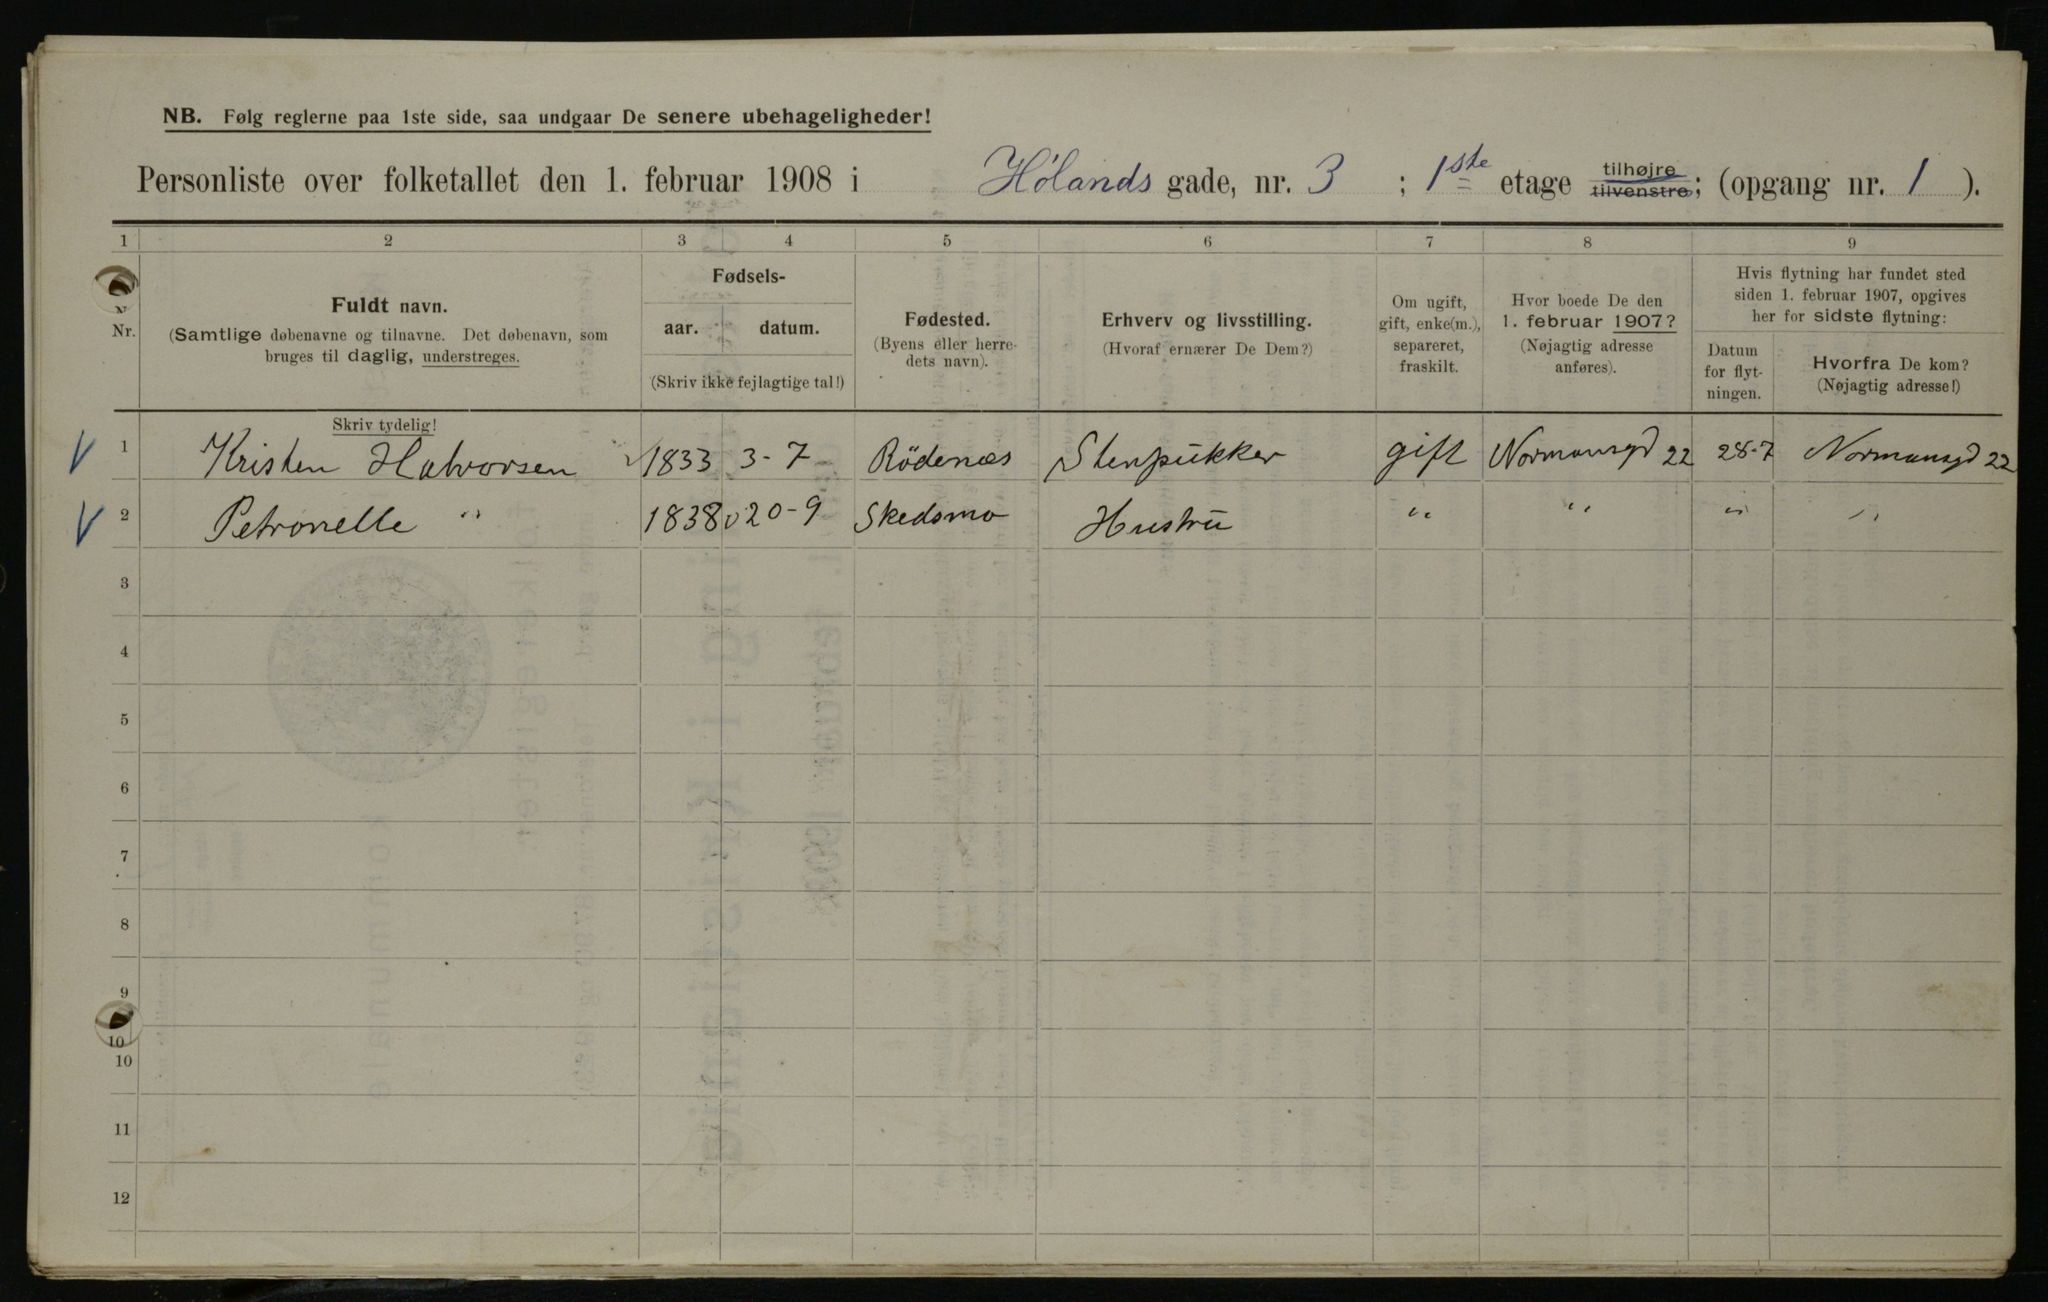 NB. Følg reglerne paa 1ste side, saa undgaar De senere ubehageligheder!
Personliste over folketallet den 1. februar 1908 i Hølands gade, nr. 3 ; 1ste etage tilhøjre tilvenstre; (opgang nr. 1 ).
1 2 3 4 5 6 7 8 9
Nr.
Fuldt navn.
(Samtlige døbenavne og tilnavne. Det døbenavn, som
bruges til daglig, understreges.
Fødsels-
aar. datum.
(Skriv ikke fejlagtige tal!)
Fødested.
(Byens eller herre-
dets navn).
Erhverv og livsstilling.
(Hvoraf ernærer De Dem?)
Om ugift,
gift, enke(m.),
separeret,
fraskilt.
Hvor boede De den
1. februar 1907?
(Nøjagtig adresse
anføres).
Hvis flytning har fundet sted
siden 1. februar 1907, opgives
her for sidste flytning:
Datum
for flyt-
ningen.
Hvorfra De kom?
(Nøjagtig adresse!)
Skriv tydelig!
1 Kristen Halvorsen 1833 3-7 Rödenæs Stenpukker gift Normansgd 22 28-7 Normansgd 22
2 Petronelle " 1838 20-9 Skedsmo Hustru " " " "
3
4
5
6
7
8
9
10
10
11
12